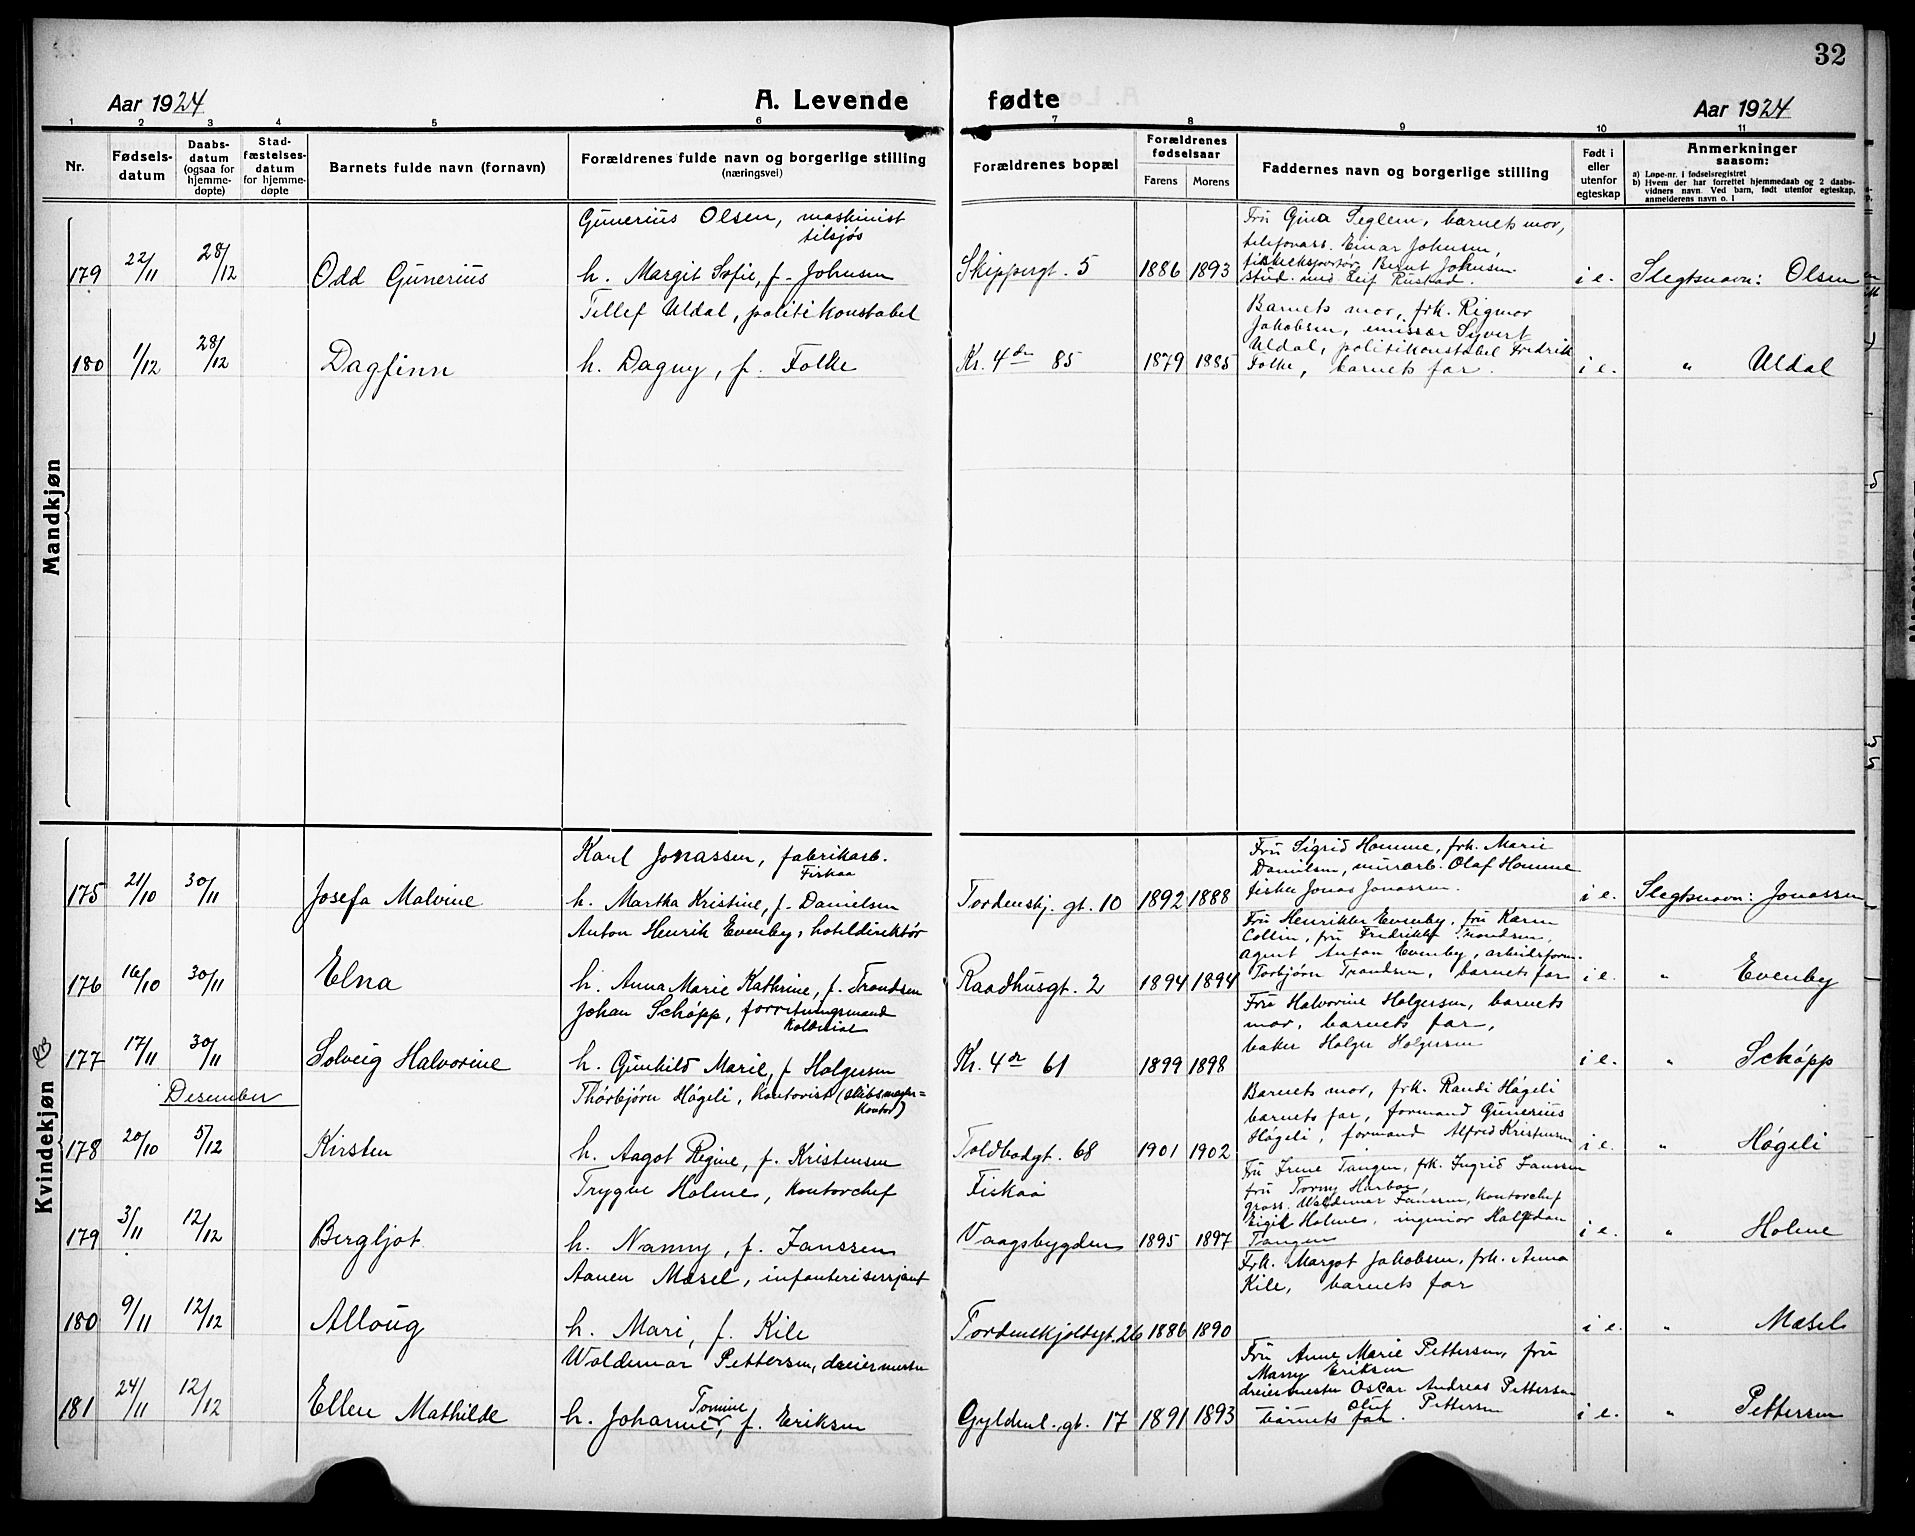 32
Aar 1924
A. Levende
fødte
Aar 1924
1 2 3 4 5 6 7 8 9 10 11
Nr.
Fødsels-
datum
Daabs-
datum
(ogsaa for
hjemme-
døpte)
Stad-
fæstelses-
datum
for hjemme-
døpte
Barnets fulde navn (fornavn)
Forældrenes fulde navn og borgerlige stilling
(næringsvei)
Forældrenes bopæl
Forældrenes
fødselsaar
Farens Morens
Faddernes navn og borgerlige stilling
Født i
eller
utenfor
egteskap
Anmerkninger
saasom:
a) Løpe-nr. i fødselsregistret
b) Hvem der har forrettet hjemmedaab og 2 daabs-
vidners navn. Ved barn, født utenfor egteskap,
anmelderens navn o. l
Mandkjøn
179 22/11 28/12 Odd Gunerius
Gunerius Olsen, maskinist
tilsjøs
h. Margit Sofie, f. Johnsen
Skippergt. 5 1886 1893
Fru Gina Seglem, barnets mor,
telefonass. Einar Johnsen,
fiskeeksportør Bernt Johnsen
stud. med. Leif Rustad.
i e. Slegtsnavn: Olsen
180 1/12 28/12 Dagfinn
Tellef Uldal, politikonstabel
h. Dagny, f. Folke
Kr. 4de 85 1879 1885
Barnets mor, frk. Rigmor
Jakobsen, emissær Syvert
Uldal, politikonstabel Fredrik
Folke, barnets far.
i e. " Uldal
Kvindekjøn
175 21/10 30/11 Josefa Malvine
Karl Jonassen, fabrikarb.
Fiskaa
h. Martha Kristine, f. Danielsen
Tordenskj. gt. 10 1892 1888
Fru Sigrid Homme, frk. Marie
Danielsen, murarb. Olaf Homme
fisker Jonas Jonassen.
i e. Slegtsnavn: Jonassen
176 16/10 30/11 Elna
Anton Henrik Evenby, hoteldirektør
h. Anna Marie Kathrine, f. Trondsen
Raadhusgt. 2 1894 1894
Fru Henrikke Evenby, fru Karen
Collin, fru Fredrikke Trondsen,
agent Anton Evenby, arbeidsform.
Torbjørn Trondsen, barnets far
i e. " Evenby
177 17/11 30/11 Solveig Halvorine
Johan Schöpp, forretningsmand
Kolonial
h. Gunhild Marie, f. Holgersen
Kr. 4de 61 1899 1898
Fru Halvorine Holgersen, barnets
mor, barnets far,
baker Holger Holgersen
i e. " Schöpp
Desember
178 20/10 5/12 Kirsten
Thorbjørn Høgeli, kontorist (skibsmegler=
kontor)
h. Aagot Regine, f. Kristensen
Toldbodgt. 68 1901 1902
Barnets mor, frk. Randi Høgeli
barnets far, formand Gunerius
Høgeli, formand Alfred Kristensen
i e. " Høgeli
179 3/11 12/12 Bergljot
Trygve Holme, kontorchef
h. Nanny, f. Janssen
Fiskaa
Vaagsbygden 1895 1897
Fru Irene Tangen, frk. Ingrid Janssen
fru Torny Harboe,
gross. Waldemar Janssen, kontorchef
Eigil Holme, ingeniør Halfdan
Tangen
i e. " Holme
180 9/11 12/12 Alloug
Aanen Mæsel, infanteriserjant
h. Mari, f. Kile
Tordenskjoldsgt. 26 1886 1890
Frk. Margot Jakobsen, frk. Anna
Kile, barnets far
i e. " Mæsel
181 24/11 12/12 Ellen Mathilde
Waldemar Pettersen, dreiermester
Tomine
h. Johanne, f. Eriksen
Gyldenl. gt. 17 1891 1893
Fru Anne Marie Pettersen, fru
Marry Eriksen
dreiermester Oscar Andreas Pettersen
Oluf Pettersen
barnets far.
i e. " Pettersen